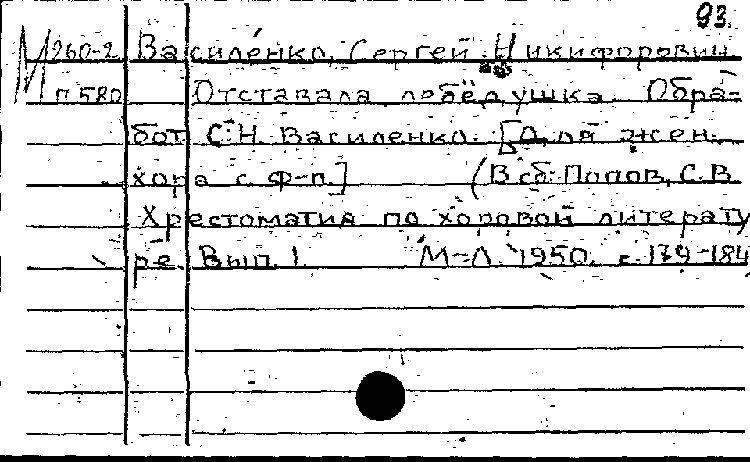 93.
М 260-2 Василенко, Сергей Никифорович
п 580 Отставала лебёдушка. Обра-
бот. С.Н. Василенко. [Для жен.
хора с ф-п.] (В сб: Попов, С.В.
Хрестоматия по хоровой литерату
ре. Вып. 1. М-Л. 1950. с. 179-184